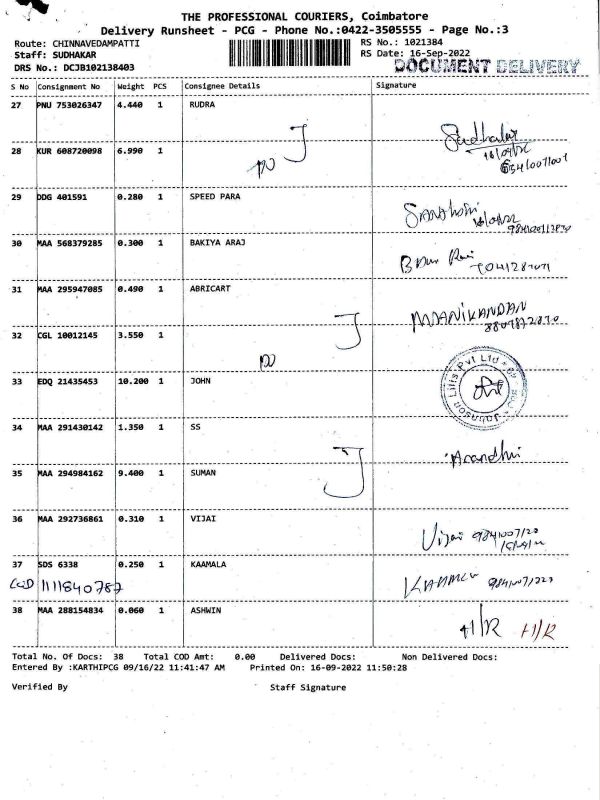 THE PROFESSIONAL COURIERS, Coimbatore
Delivery Runsheet - PCG - Phone No.:0422-3505555 - Page No.:3
Route: CHINNAVEDAMPATTI RS No.: 1021384
Staff: SUDHAKAR RS Date: 16-Sep-2022
DRS No.: DCJB102138403 DOCUMENT DELIVERY
S No Consignment No Weight PCS Consignee Details Signature
27 PNU 753026347 4.440 1 RUDRA
Sudhakar
28 KUR 608720098 6.990 1
29 DDG 401591 0.280 1 SPEED PARA
Santhosh
30 MAA 568379285 0.300 1 BAKIYA ARAJ
31 MAA 295947085 0.490 1 ABRICART
MANIKANDAN
32 CGL 10012145 3.550 1
33 EDQ 21435453 10.200 1 JOHN
34 MAA 291430142 1.350 1 SS
35 MAA 294984162 9.400 1 SUMAN
36 MAA 292736861 0.310 1 VIJAI
Vijai
37 SDS 6338 0.250 1 KAAMALA
COD 1111840787
38 MAA 288154834 0.060 1 ASHWIN
H/R H/R
Total No. Of Docs: 38 Total COD Amt: 0.00 Delivered Docs: Non Delivered Docs:
Entered By :KARTHIPCG 09/16/22 11:41:47 AM Printed On: 16-09-2022 11:50:28
Verified By Staff Signature